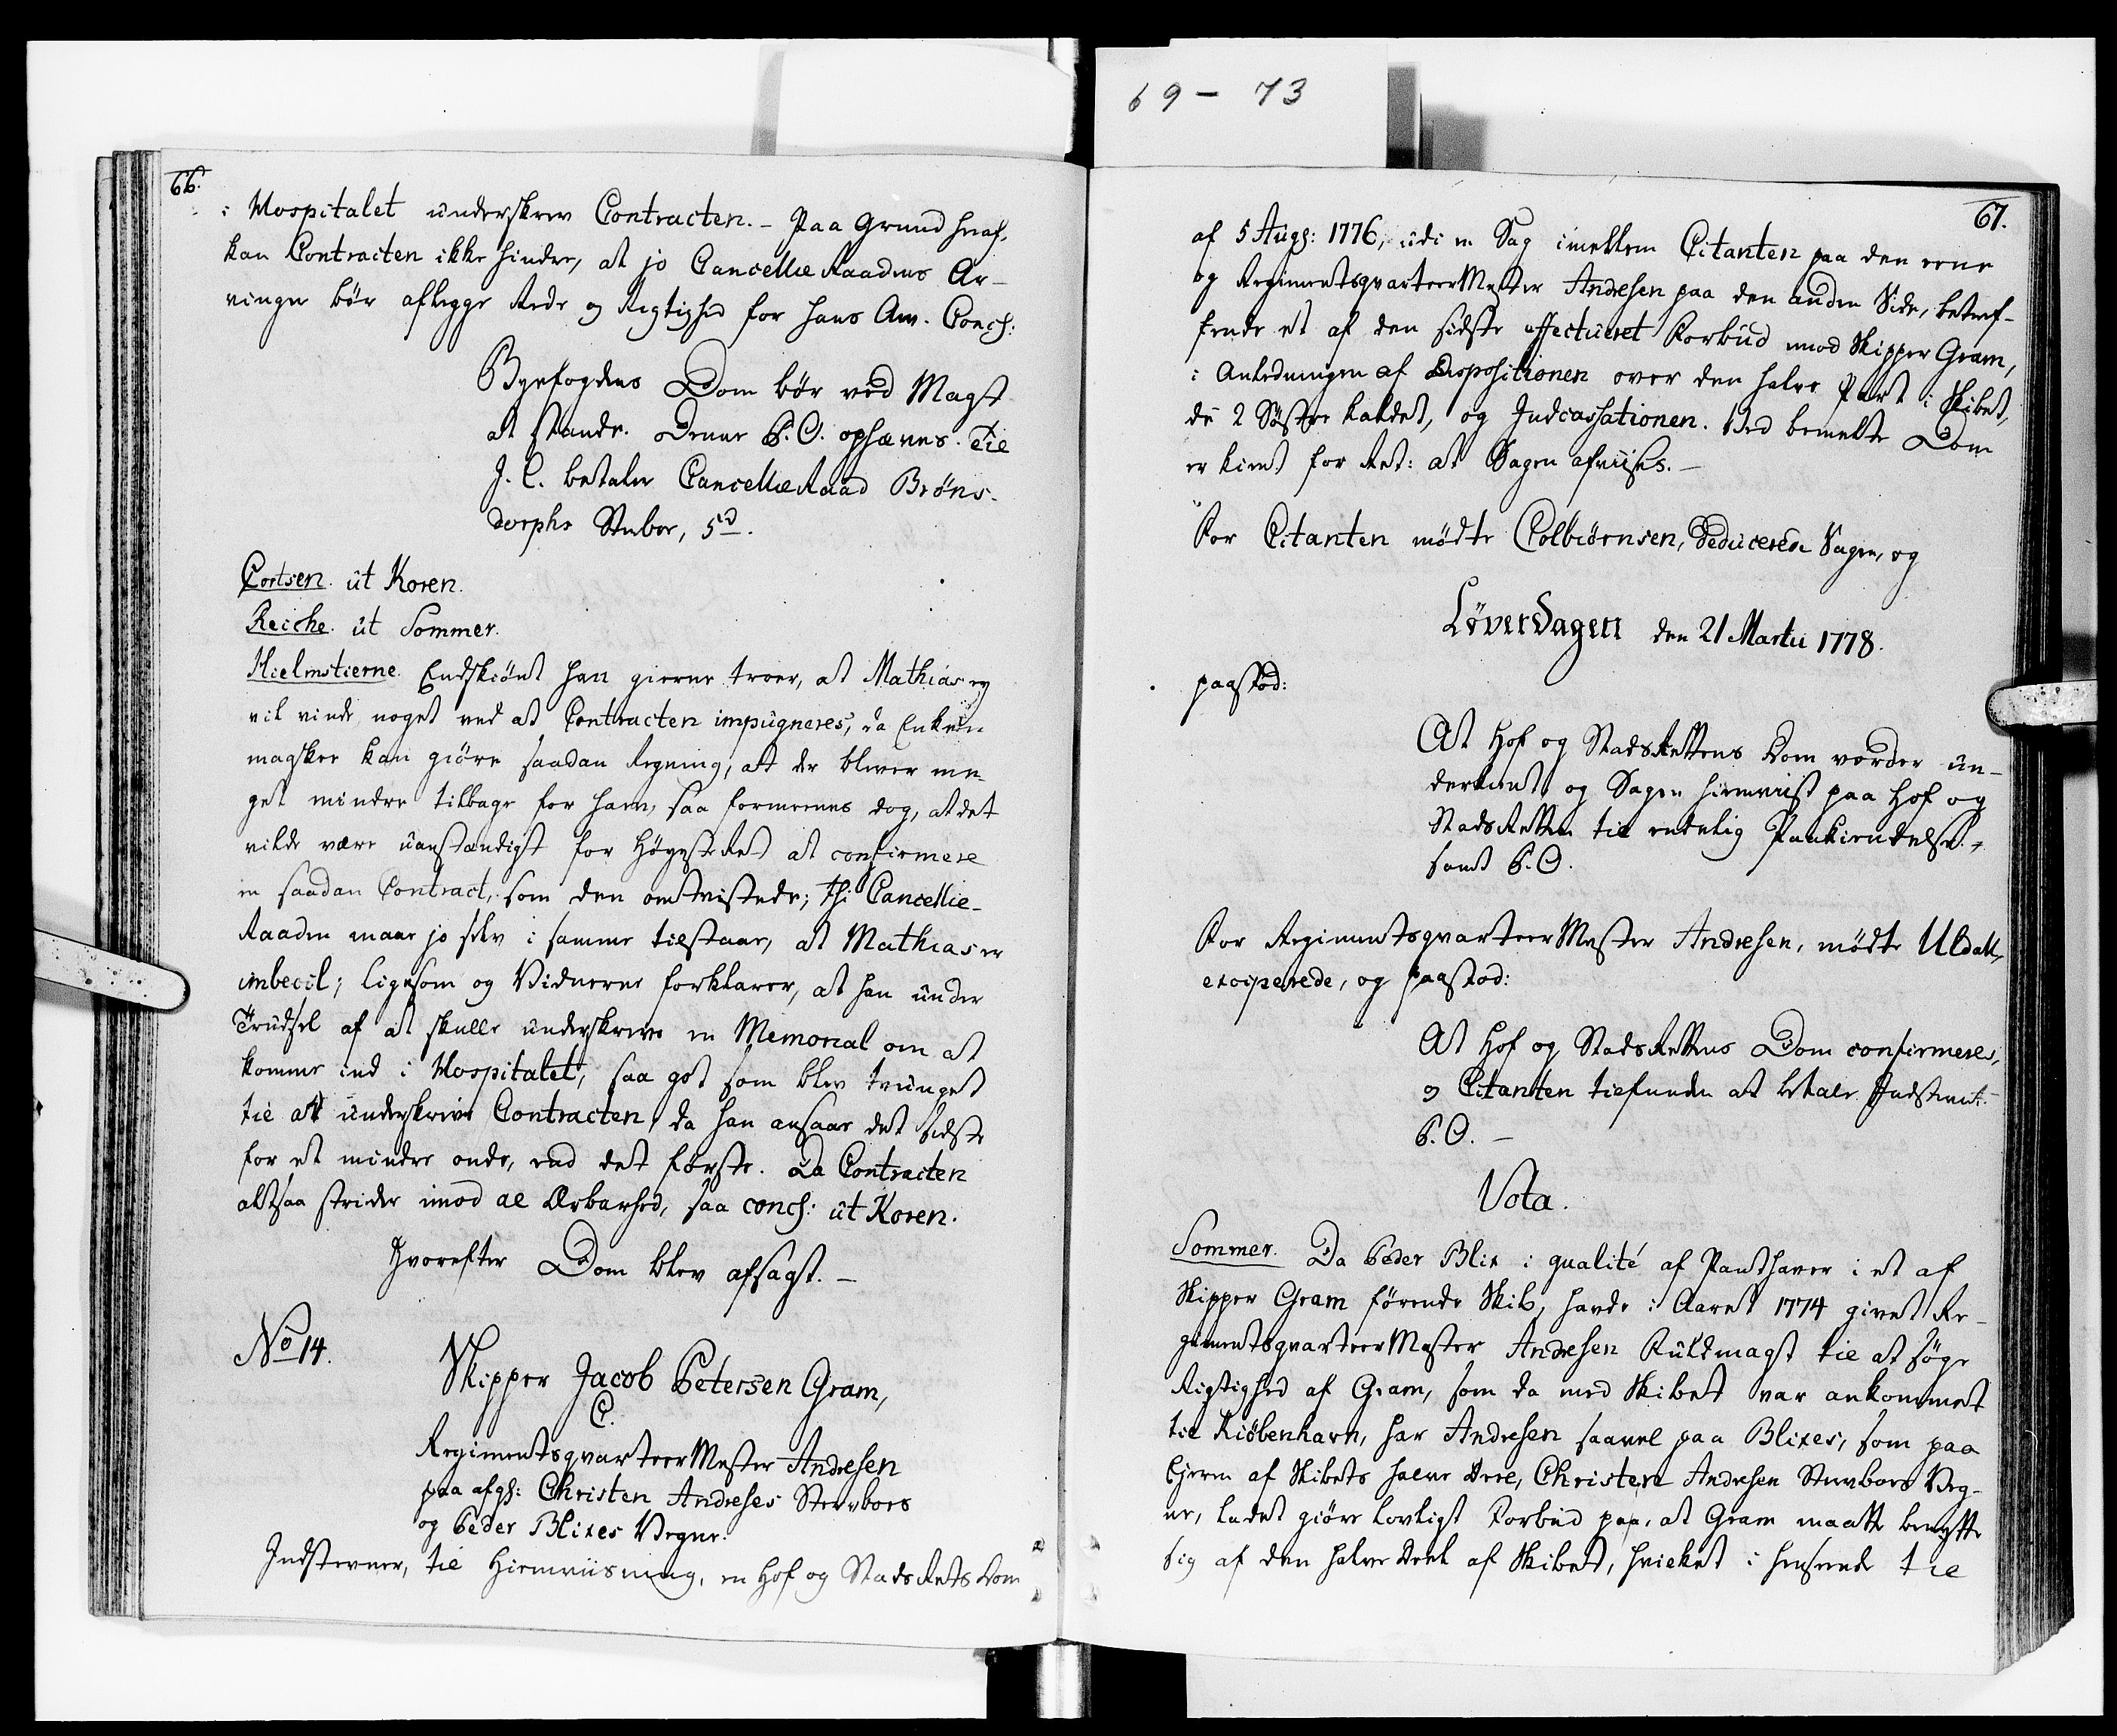 69 - 73
66.
i Hospitalet underskrev Contracten. - Paa Grund heraf,
kan Contracten ikke hindre, at jo CancellieRaadens Ar-
vinger bör aflegge Rede og Rigtighed for hans Arv. Concl:
Byefogdens Dom bör ved Magt
at stande. Denne P. O. ophæves. Til
J. C. betaler CancellieRaad Bröns-
dorphs Sterboe, 5 rd.
Cortsen. ut Koren.
Reiche. ut Sommer.
Hielmstierne. Endskiönt han gierne troer, at Mathias ey
vil vinde noget ved at Contracten impugneres, da Enken
magsker kan giöre saadan Regning, at der bliver me-
get mindre tilbage for ham, saa formeenes dog, at det
vilde være uanstændigt for HöyesteRet at confirmere
en saadan Contract, som den omtvistede; thi Cancellie-
Raaden maae jo selv i samme tilstaae, at Mathias er
imbecil; ligesom og Vidnerne forklarer, at han under
Trudsel af at skulle underskrive en Memorial om at
komme ind i Hospitalet, saa got som blev tvunget
til at underskrive Contracten, da han ansaae det sidste
for et mindre onde, end det förste. Da Contracten
altsaa strider imod al Ærbarhed, saa concl: ut Koren.
Hvorefter Dom blev afsagt. -
No 14.
Skipper Jacob Petersen Gram,
C.
RegimentsqvarteerMester Andresen
paa afgl: Christen Andreses Stervboes
og Peder Blixes Vegne.
Indstevner, til Hiemviisning, en Hof og StadsRets Dom
67.
af 5 Aug: 1776, udi en Sag imellem Citanten paa den eene
og RegimentsqvarteerMester Andresen paa den anden Side, betref-
fende et af den sidste effectueret Forbud imod Skipper Gram,
i Anledningen af Dispositionen over den halve Part i Skibet,
de 2 Söstre kaldet, og Indcassationen. Ved bemelte Dom
er kiendt for Ret: at Sagen afviises. -
For Citanten mödte Colbiörnsen, deducerede Sagen, og
Löverdagen den 21 Martii 1778.
paastod:
At Hof og StadsRettens Dom vorder un-
derkiendt, og Sagen hiemviist paa Hof og
StadsRetten til endelig Paakiendelse,
samt P. O.
For RegimentsqvarteerMester Andresen, mödte Uldall,
exciperede, og paastod:
At Hof og StadsRettens Dom confirmeres,
og Citanten tilfunden at betale Indstevnt.
P. O. -
Vota.
Sommer. Da Peder Blix i qualité af Panthaver i et af
Skipper Gram förende Skib, havde i Aaret 1774 givet Re-
gimentsqvarteerMester Andresen Fuldmagt til at söge
Rigtighed af Gram, som da med Skibet var ankommet
til Kiöbenhavn, har Andresen saavel paa Blixes, som paa
Ejeren af Skibets halve Deel, Christen Andresen Stervboes Veg-
ne, ladet giöre lovligt Forbud paa, at Gram maatte benytte
sig af den halve Deel af Skibet, hvilket i henseende til